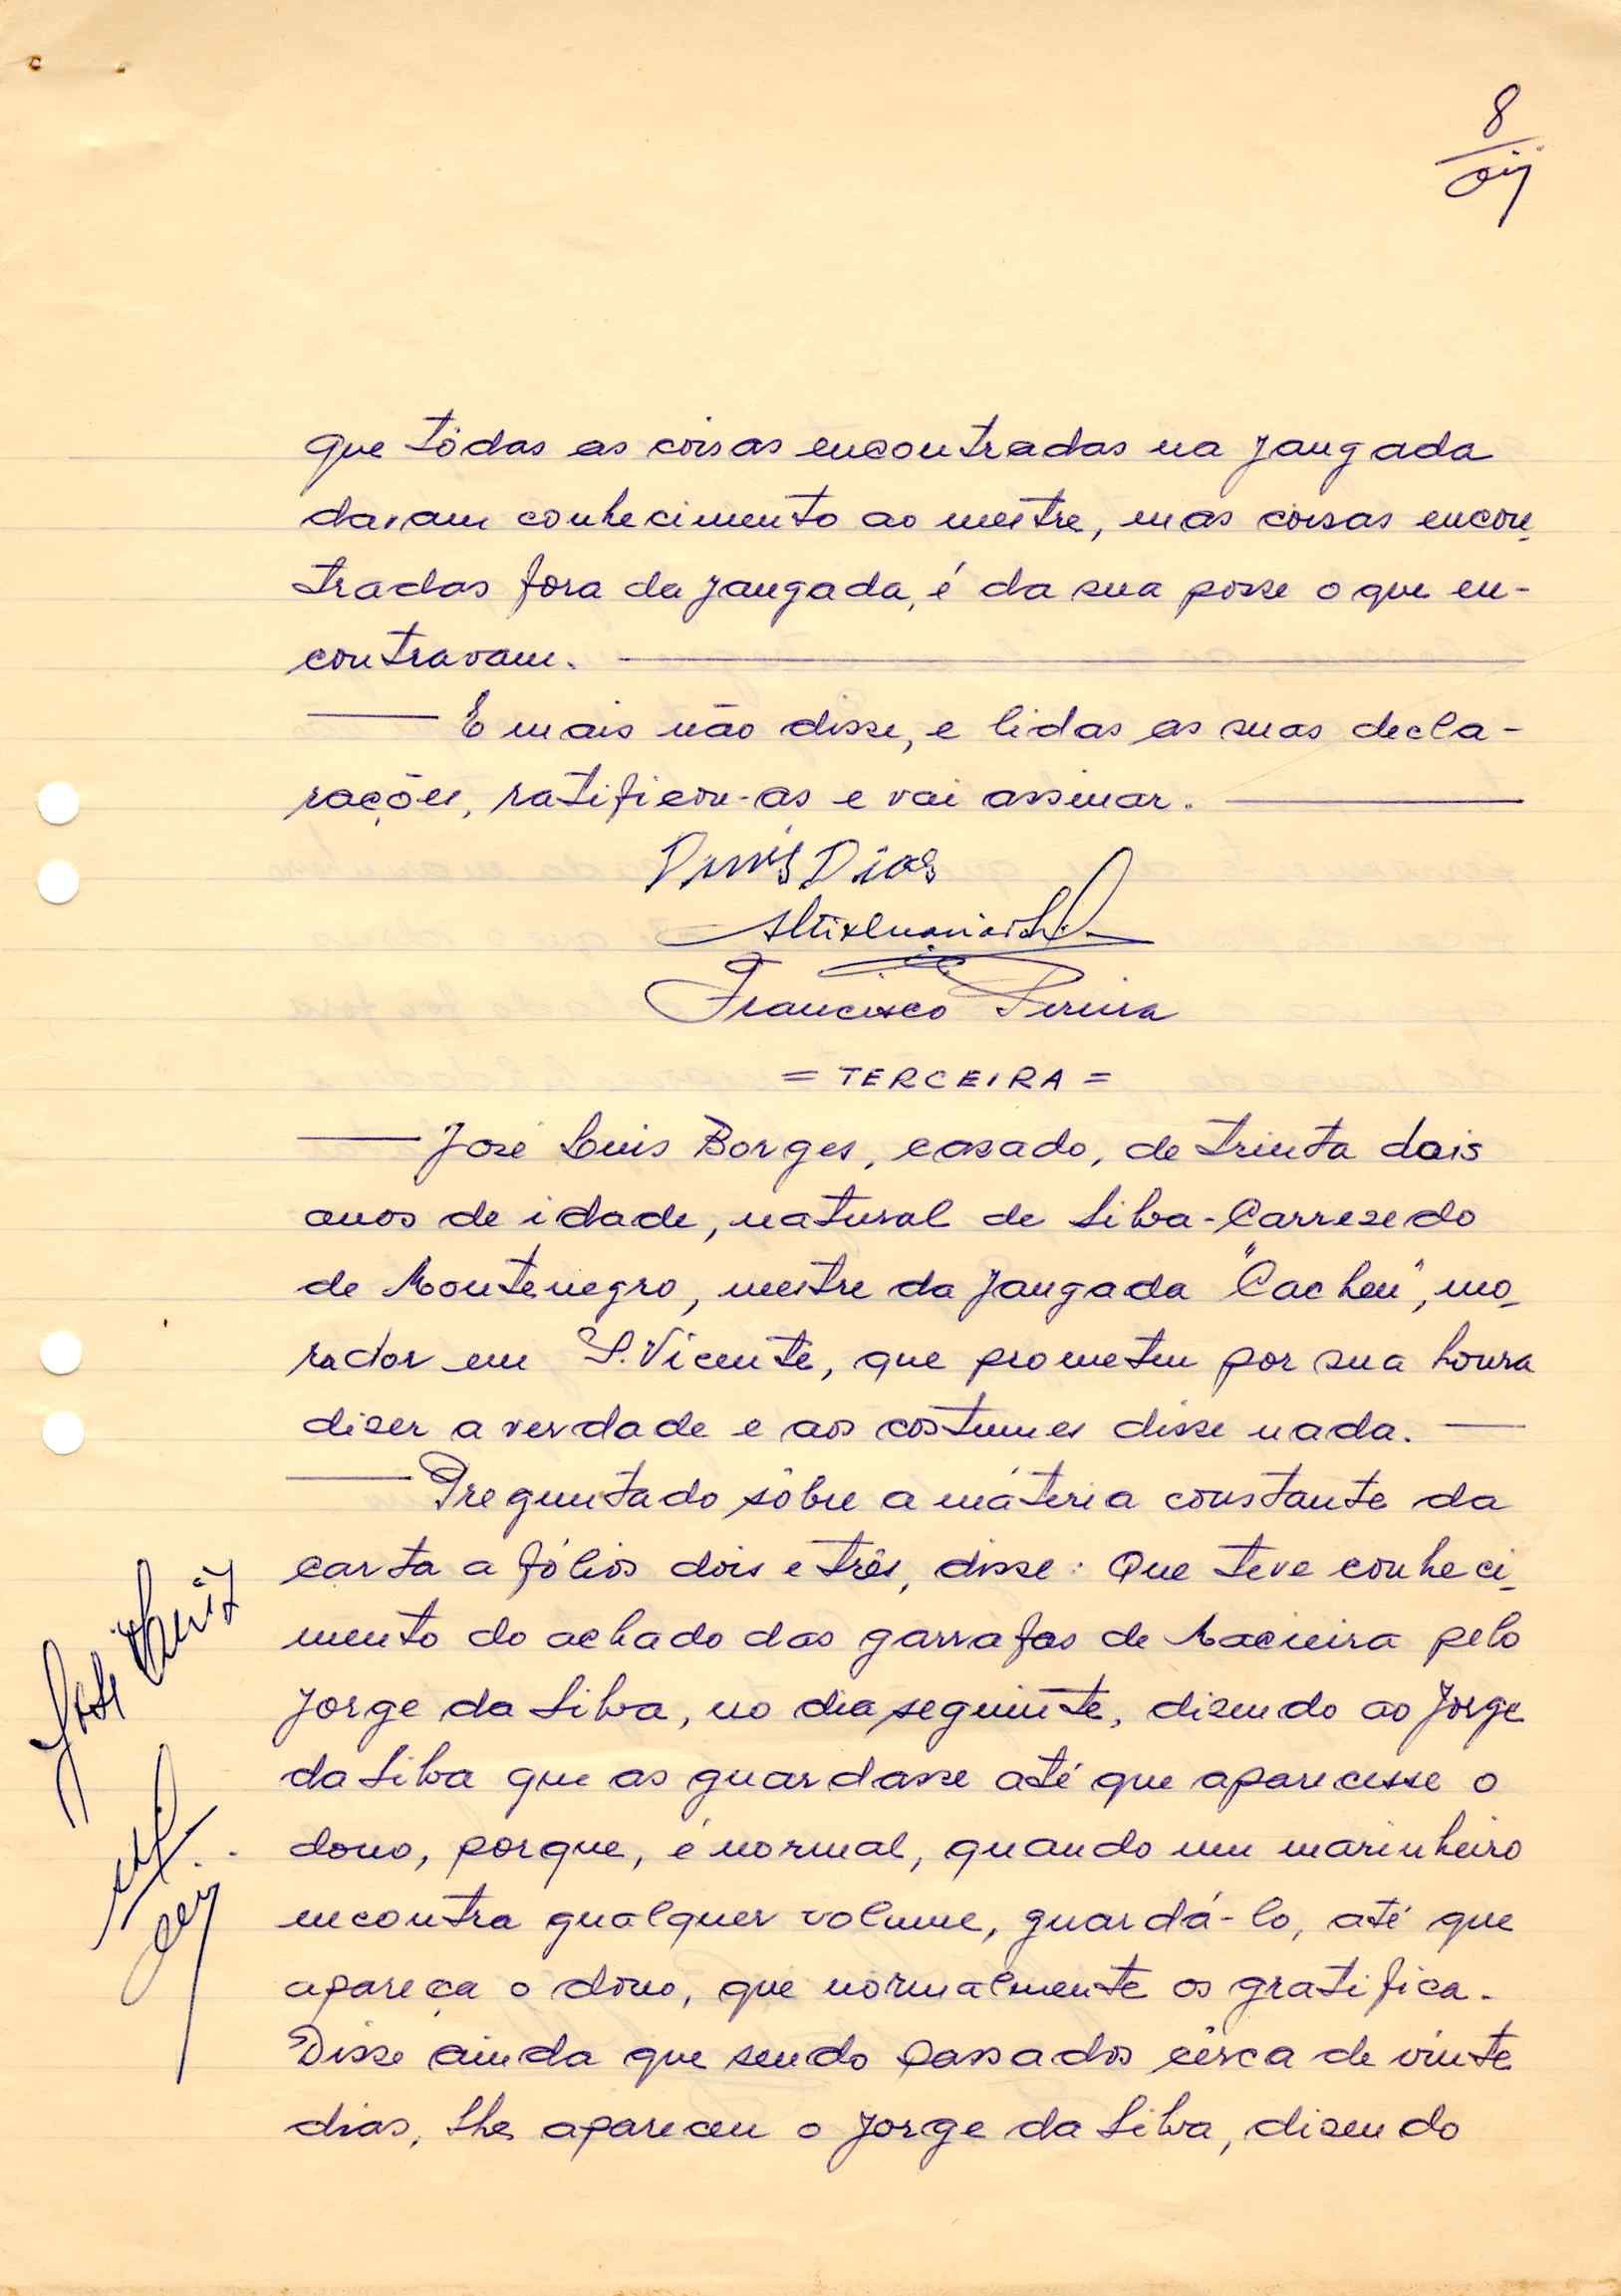 8
que tôdas as coisas encontradas na jangada
davam conhecimento ao mestre, mas coisas encon-
tradas fora da jangada, é da sua posse o que en-
contravam.
E mais não disse, e lidas as suas decla-
rações, ratificou-as e vai assinar.
Dinis Dias
Francisco Pereira
= TERCEIRA =
José Luis Borges, casado, de trinta dois
anos de idade, natural de Silva-Carrezedo
de Montenegro, mestre da jangada "Cacheu", mo-
rador em S. Vicente, que prometeu por sua honra
dizer a verdade e aos costumes disse nada.
Preguntado sôbre a matéria constante da
carta a fólios dois e três, disse: Que teve conheci-
mento do achado das garrafas de Macieira pelo
Jorge da Silva, no dia seguinte, dizendo ao Jorge
da Silva que as guardasse até que aparecesse o
dono, porque, é normal, quando um marinheiro
encontra qualquer volume, guardá-lo, até que
apareça o dono, que normalmente os gratifica.
Disse ainda que sendo passados cêrca de vinte
dias, lhe apareceu o Jorge da Silva, dizendo
José Luiz